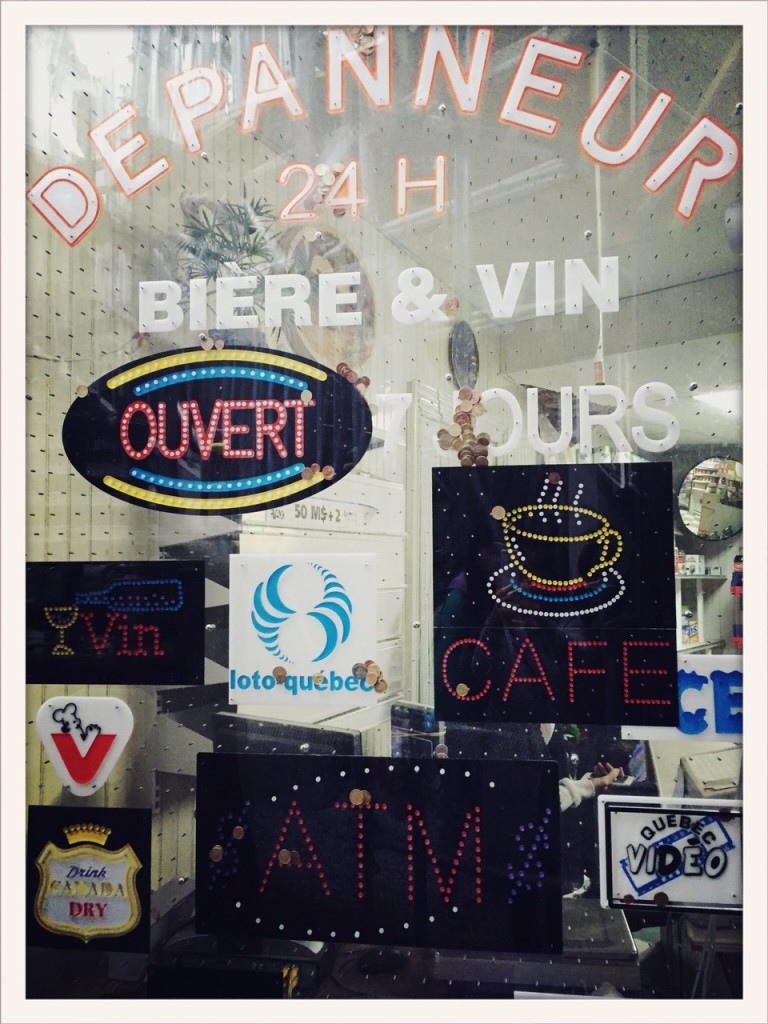 DEPANNEUR
24 H
BIÈRE & VIN
OUVERT
7 JOURS
50 M$+2
Vin
loto québec
CAFE
CE
V
ATM
Drink
CANADA
DRY
QUEBEC
VIDÉO